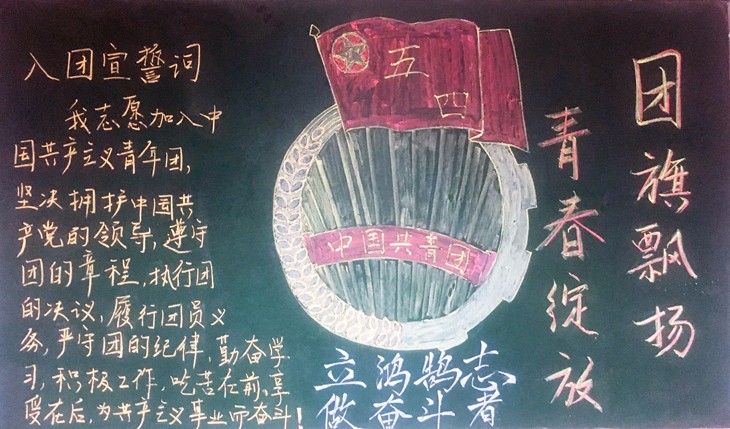 入团宣誓词
我志愿加入中
国共产主义青年团,
坚决拥护中国共
产党的领导,遵守
团的章程,执行团
的决议,履行团员义
务,严守团的纪律,勤奋学
习,积极工作,吃苦在前,享
受在后,为共产主义事业而奋斗!
五四
中国共青团
立鸿鹄志
做奋斗者
团旗飘扬
青春绽放